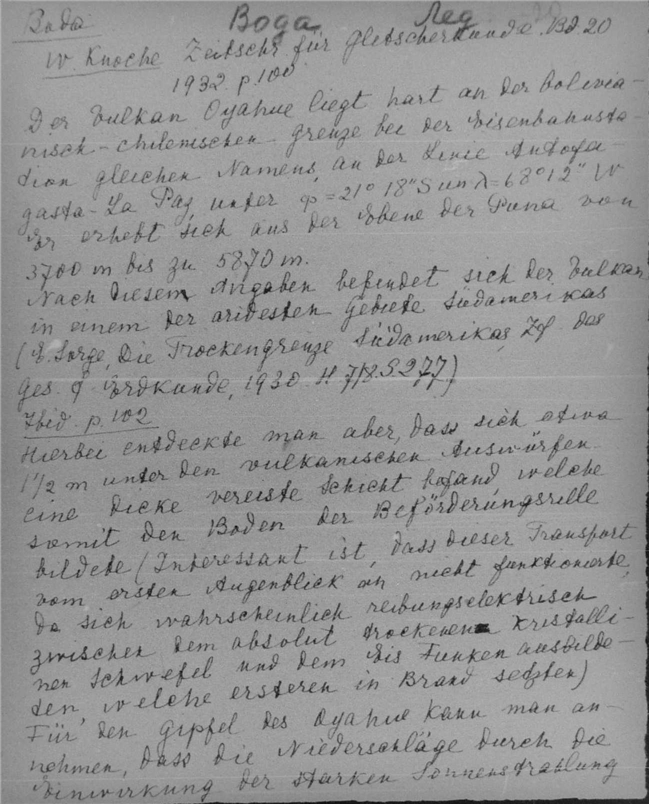 Вода Вода Лед
W. Knoche Zeitschr für Gletscherkunde. Bd 20
1932 p. 100
Der Vulkan Oyahue liegt hart an der bolivia-
nisch-chilenischen grenze bei der Eisenbahnsta-
tion gleichen Namens, an der Linie Antofa-
gasta-La Paz, unter φ=21° 18" S un λ=68° 12" W
Er erhebt sich aus der Ebene der Puna von
3700 m bis zu 5870 m.
Nach diesem Angaben befindet sich der Vulkan
in einem der aridesten gebiete Südamerikas
(E. Sorge, Die Trockengrenze Südamerikas, Zf. des
ges. f Erdkunde, 1930. H 7/8. S 277)
Ibid. p. 102
Hierbei entdeckte man aber, dass sich etwa
1 1/2 m unter den vulkanischen Auswürfen
eine dicke vereiste Schicht befand welche
somit den Boden der Beförderungsrille
bildete (Interessant ist, dass dieser Transport
vom ersten Augenblick an nicht funktionierte,
da sich wahrscheinlich reibungselektrisch
zwischen dem absolut trockenen kristalli-
nen Schwefel und dem Eis Funken ausbilde-
ten welche ersteren in Brand setzten)
Für den gipfel des Oyahue kann man an-
nehmen, dass die Niederschläge durch die
Einwirkung der starken Sonnenstrahlung